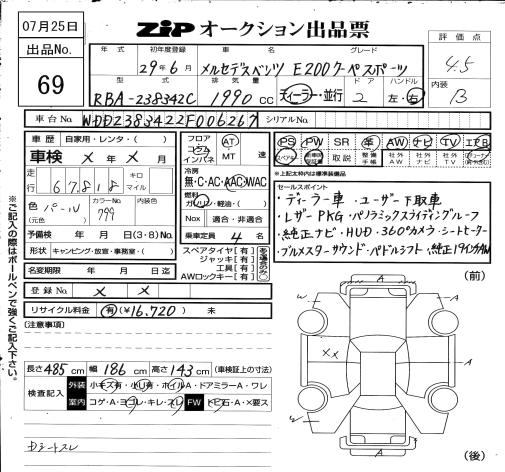 07月25日
ZIP オークション出品票
出品No.
69
評価点
4.5
内装
B
年式
初年度登録
29年6月
車名
メルセデスベンツ
グレード
E200クーペスポーツ
型式
RBA-238342C
排気量
1990cc
ディーラー・並行
ドア
2
ハンドル
左・右
車台No.
WDD2383422F006267
シリアルNo.
車歴
自家用・レンタ( )
車検 × 年 × 月
走行
67,818
キロ
マイル
色
(元色)
パール
カラーNo.
799
内装色
予備検 年 月 日(3・8)No.
形状
キャンピング・放宣・事務室・( )
名変期限 年 月 日迄
フロア
コラム
インパネ
AT
MT
速
冷房
無・C・AC・AAC・WAC
燃料
ガソリン・軽油・( )
NOx
適合・非適合
乗車定員 4 名
スペアタイヤ[有]
ジャッキ[有]
工具[有]
AWロックキー[有]
PS PW SR 革 AW ナビ TV エアB
スペアキー
取説
整備手帳
社外AW
社外ナビ
社外TV
※上記太枠内は標準装備品
セールスポイント
・ディーラー車・ユーザー下取車
・レザーPKG・パノラミックスライディングルーフ
・純正ナビ・HUD・360°カメラ・シートヒーター
・ブルメスターサウンド・パドルシフト・純正19インチAW
登録No. × ×
リサイクル料金
有(¥16,720) 未
(注意事項)
長さ485cm 幅186cm 高さ143cm (車検証上の寸法)
検査記入
外装
小キズ有・小U有・ホイルA・ドアミラーA・ワレ
室内
コゲ・A・ヨゴレ・キレ・スレ
FW
トビ石・A・×要ス
シートスレ
(前)
A
W
A
××
W
A
A
(後)
※ご記入の際はボールペンで強くご記入下さい。